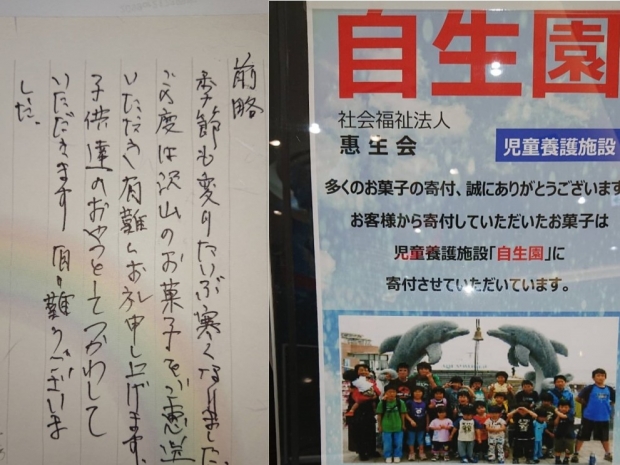 前略
季節も変りだいぶ寒くなりました。
この度は沢山のお菓子をご恵送
いただき有難くお礼申し上げます。
子供達のおやつとしてつかわして
いただきます 有り難うございま
した。
自生園
社会福祉法人
惠生会
児童養護施設
多くのお菓子の寄付、誠にありがとうございます
お客様から寄付していただいたお菓子は
児童養護施設「自生園」に
寄付させていただいています。